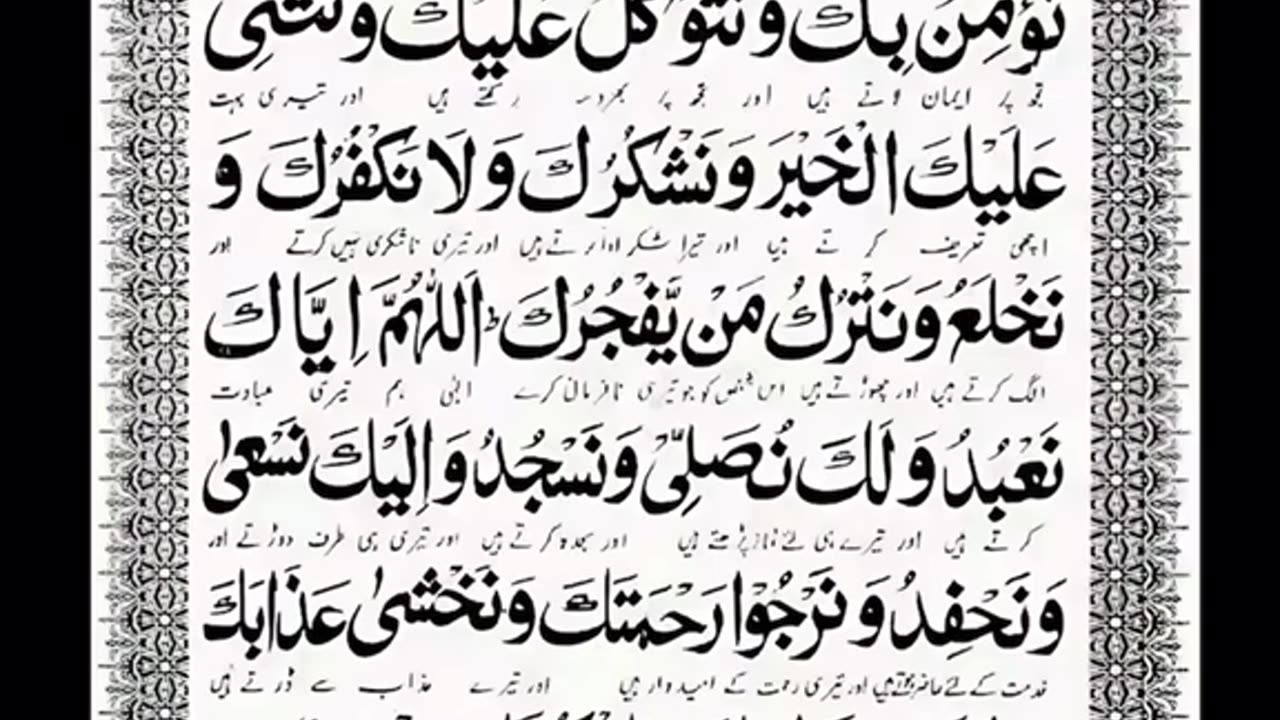 نُؤْمِنُ بِكَ وَنَتَوَكَّلُ عَلَيْكَ وَنُثْنِیْ
تجھ پر ایمان لاتے ہیں اور تجھ پر بھروسہ رکھتے ہیں اور تیری بہت
عَلَيْكَ الْخَيْرَ وَنَشْكُرُكَ وَلَا نَكْفُرُكَ وَ
اچھی تعریف کرتے ہیں اور تیرا شکر ادا کرتے ہیں اور تیری ناشکری نہیں کرتے اور
نَخْلَعُ وَنَتْرُكُ مَنْ يَّفْجُرُكَ ؕ اَللّٰهُمَّ اِيَّاكَ
الگ کرتے ہیں اور چھوڑتے ہیں اس شخص کو جو تیری نافرمانی کرے الہٰی ہم تیری عبادت
نَعْبُدُ وَلَكَ نُصَلِّیْ وَنَسْجُدُ وَاِلَيْكَ نَسْعٰی
کرتے ہیں اور تیرے ہی لئے نماز پڑھتے ہیں اور سجدہ کرتے ہیں اور تیری ہی طرف دوڑتے اور
وَنَحْفِدُ وَنَرْجُوْا رَحْمَتَكَ وَنَخْشٰی عَذَابَكَ
خدمت کے لئے حاضر ہوتے ہیں اور تیری رحمت کے امیدوار ہیں اور تیرے عذاب سے ڈرتے ہیں